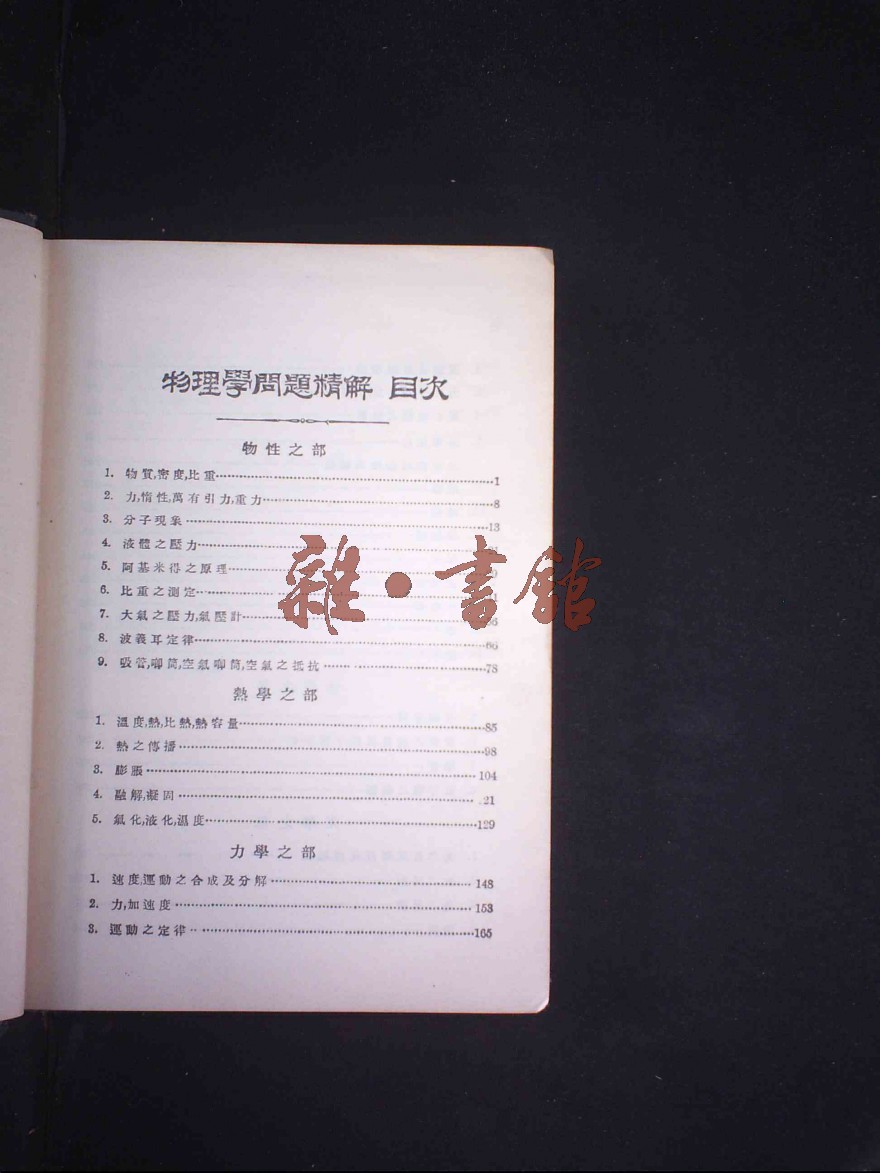 物理學問題精解 目次
物性之部
1. 物質,密度,比重……1
2. 力,惰性,萬有引力,重力……8
3. 分子現象……13
4. 液體之壓力……
5. 阿基米得之原理……
6. 比重之測定……
7. 大氣之壓力,氣壓計……
8. 波義耳定律……66
9. 吸管,喞筒,空氣喞筒,空氣之抵抗……78
熱學之部
1. 溫度,熱,比熱,熱容量……85
2. 熱之傳播……98
3. 膨脹……104
4. 融解,凝固……21
5. 氣化,液化,濕度……129
力學之部
1. 速度,運動之合成及分解……148
2. 力,加速度……153
3. 運動之定律……165
雜·書館